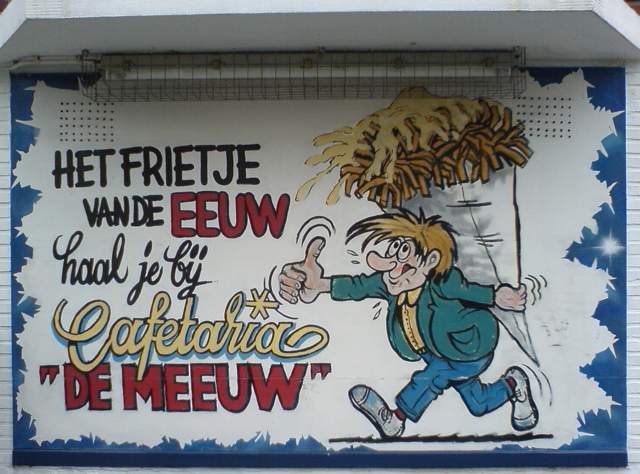 HET FRIETJE
VAN DE EEUW
haal je bij
Cafetaria
"DE MEEUW"